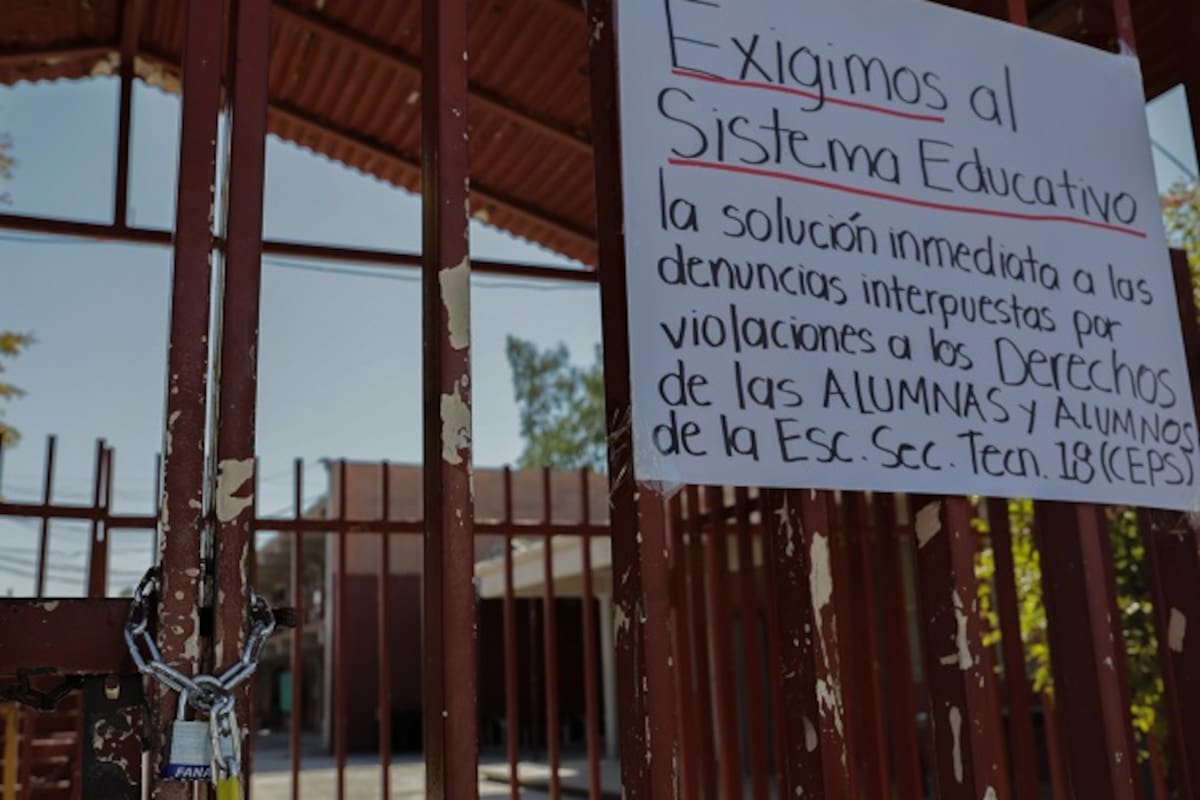 Exigimos al
Sistema Educativo
la solución inmediata a las
denuncias interpuestas por
violaciones a los Derechos
de las ALUMNAS y ALUMNOS
de la Esc. Sec. Tecn. 18 (CEPS)
FANA